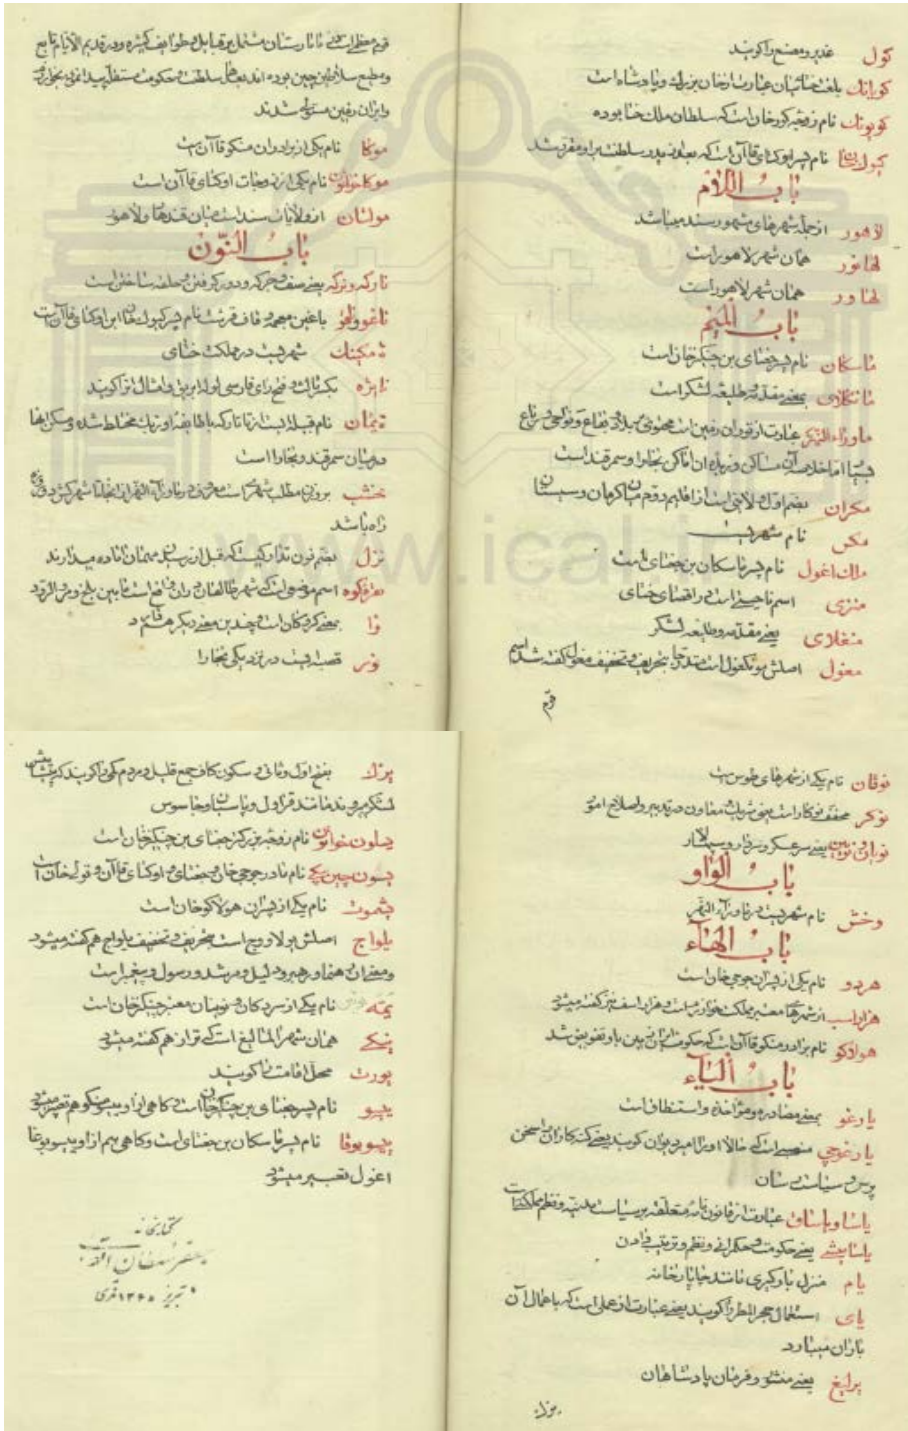 کول غدیر و مصنع را کویند
کورانک بلغت ختائیان عبارت از خان بزرک و پادشاه است
کویونک نام زوجه کورخان است که سلطان ملک ختا بوده
نام پسر اوکتای قاآن است که بعد از پدر سلطنت بر او مقرر شد
باب اللام
لاهور از جمله شهرهای مشهور سند میباشد
لهانور همان شهر لاهور است
لهاور همان شهر لاهور است
باب المیم
ماسکان نام پسر جغتای بن چنکیزخان است
مانکلای بمعنی مقدمه و طلیعه لشکر است
ماوراء النهر عبارت از توران زمین است محتوی ببلاد و بقاع و نواحی و رباع
اما خلاصه آن مساکن و زبده آن اماکن بخارا و سمرقند است
مکران بضم اول ولایتی است از اقلیم دوم میان کرمان و سیستان
مکس نام شهریست
ملک اغول نام پسر ماسکان بن جغتای است
منزی اسم ناحیه است در اقصای ختای
منغلای یعنی مقدمه و طلیعه لشکر
مغول اصلش مونکغول است بتدریج بتحریف و تخفیف مغول کفته شد اسم
قوم
قوم معظم است در تاتارستان مشتمل بر قبایل و طوایف کثیره و در قدیم الایام تابع
و مطیع سلاطین چین بوده اند بعدها سلطنت و حکومت مستقل پیدا نموده
و ایران زمین مستولی شدند
موکا نام یکی از برادران منکو قاآن است
موکاخاتون نام یکی از زوجات اوکتای قاآن است
مولتان از ولایات سند است میان قندهار و لاهور
باب النون
نارکه و نرکه یعنی صف و جرکه و دور کرفتن و حلقه ساختن است
باغین معجمه و قاف قرشت نام پسر کیوک خان ابن اوکتای قاآن است
شهریست در مملکت ختای
نایژه بکسر ثالث و فتح زای فارسی لوله ابریق و امثال انرا کویند
نام قبیله ایست از تاتار که با طایفه اوزبک مختلط شده و مسکن انها
در میان سمرقند و بخارا است
نخشب بر وزن مطلب شهری است معروف در ماوراء النهر از انجا تا شهر کش دو روزه
راه باشد
نزل بضم نون تدارکیست که قبل از رسیدن مهمان اماده میدارند
اسم موضعی است که شهر طالقان در ان واقع است مابین بلخ و مرو الرود
نوا بمعنی کروکان است و چندین معنی دیکر هم دارد
نور قصبه ایست در نزدیکی بخارا
نوقان نام یکی از شهرهای طوس است
نوکر مخفف نوکار است یعنی شریک و معاون در تدبیر و اصلاح امور
یعنی سرعسکر و سردار و سپهسالار
باب الواو
وخش نام شهریست در ماوراء النهر
باب الهاء
هردو نام یکی از پسران جوجی خان است
هزاراسب از شهرهای معتبر مملکت خوارزم است و هزاراسف نیز کفته میشود
هولاکو نام برادر منکو قاآن است که حکومت ایران زمین باو تفویض شد
باب الیاء
یارغو بمعنی مصادره و مؤاخذه و استنطاق است
یارغوچی منصبی است که حالا او را امیر دیوان کویند یعنی کنه کاران را سخن
پرس و سیاست رسان
یاسا و یاساق عبارت از قانون نامه متعلقه بر سیاست مدنیه و نظم مملکت است
یاسامیشی یعنی حکومت و حکمرانی و نظم و ترتیب دادن
یام منزل باوکیری مانند چاپارخانه
یای استعمال حجر المطر را کویند یعنی عبارت از عملی است که باعمال آن
باران میبارد
یرلیغ یعنی منشور و فرمان پادشاهان
یزک
یزک بفتح اول و ثانی و سکون کاف جمع قلیل و مردم کمی را کویند که پیشاپیش
لشکر میروند مانند قراول و پاسبان و جاسوس
نام زوجه بزرک جغتای بن چنکیزخان است
نام مادر جوجی خان و جغتای و اوکتای قاآن و تولی خان است
یشموت نام یکی از پسران هولاکو خان است
یلواج اصلش یولاووج است بتحریف و تخفیف یلواج هم کفته میشود
و معنی ان رهنما و رهبر و دلیل و مرشد و رسول و پیغمبر است
یمه نام یکی از سردکان و نویینان معتبر چنکیزخان است
ینکی همان شهر المالیغ است که تراز هم کفته میشود
یورت محل اقامت را کویند
ییسو نام پسر جغتای بن چنکیزخان است و کاهی از او ییسو منکو هم تعبیر میشود
ییسوبوقا نام پسر ماسکان بن جغتای است و کاهی هم از او ییسو بوغا
اغول تعبیر میشود
کتابخانه
تبریز ۱۳۴۰ قمری
www.ical.ir